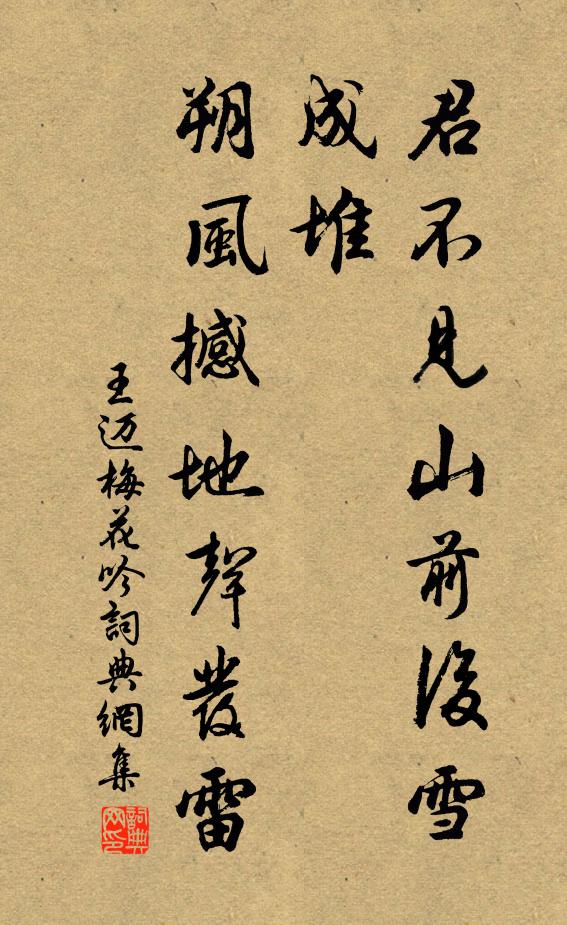 君不見山前後雪
成堆
朔風撼地聲發雷
王迈梅花吟詞典網集
詞典
网印